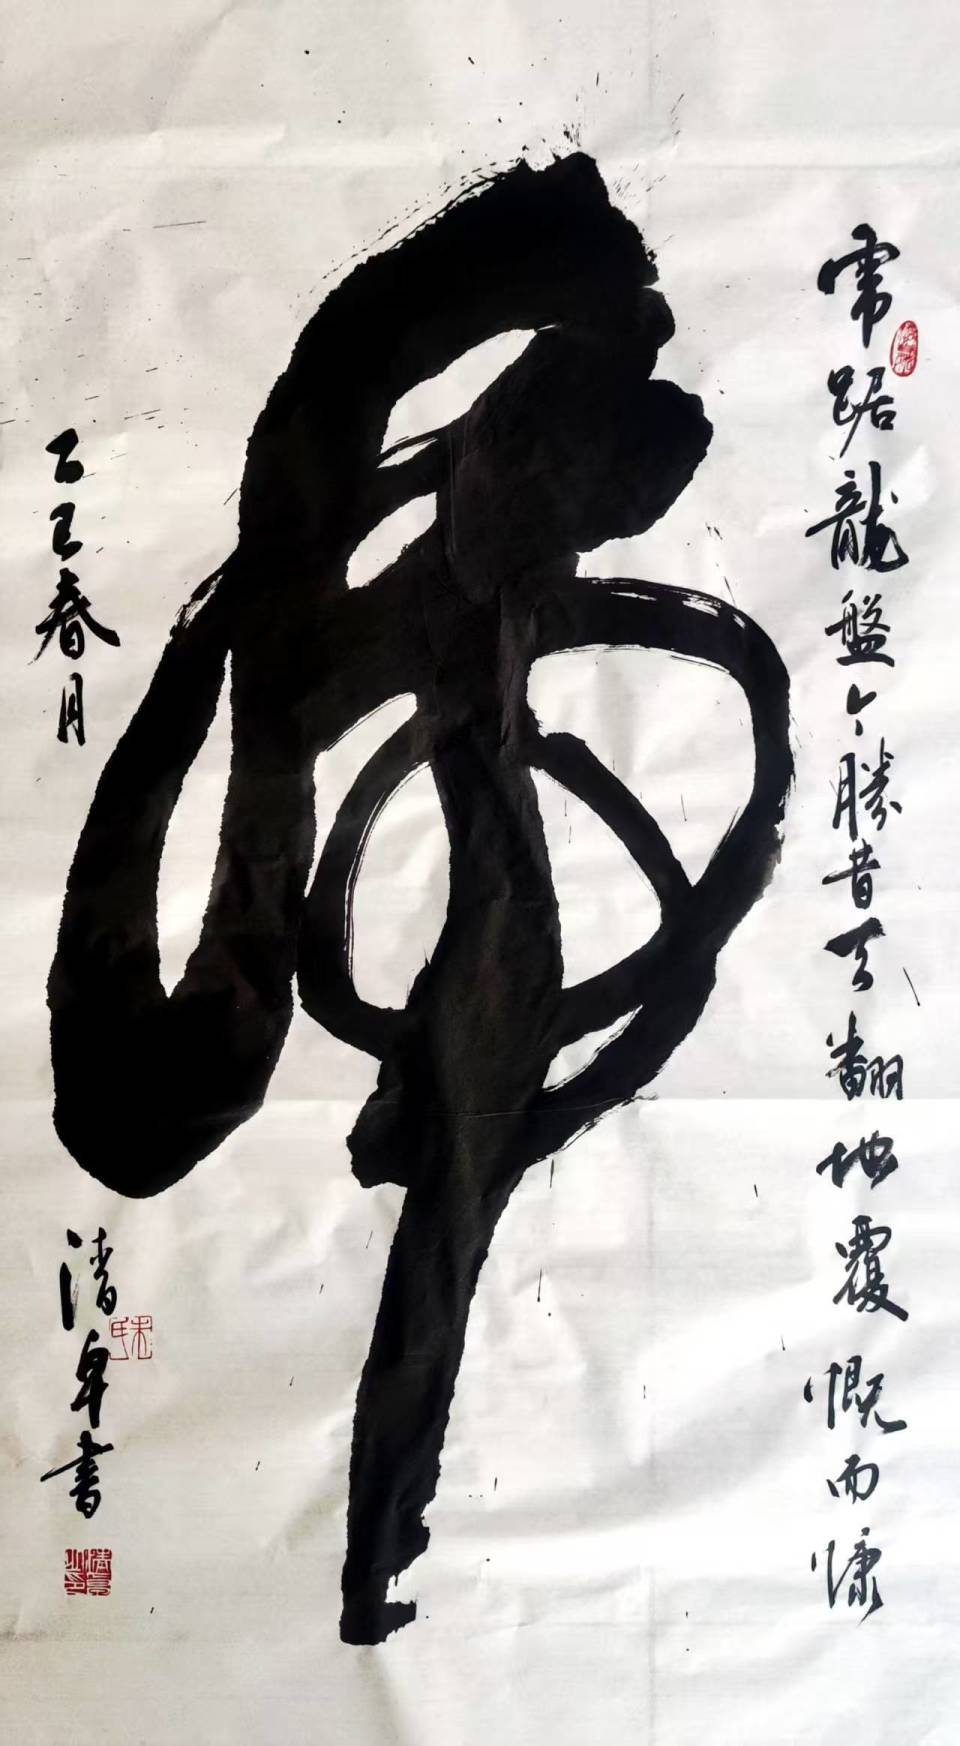 虎踞龍盤今勝昔天翻地覆慨而慷
虎
乙巳春月
清卓書